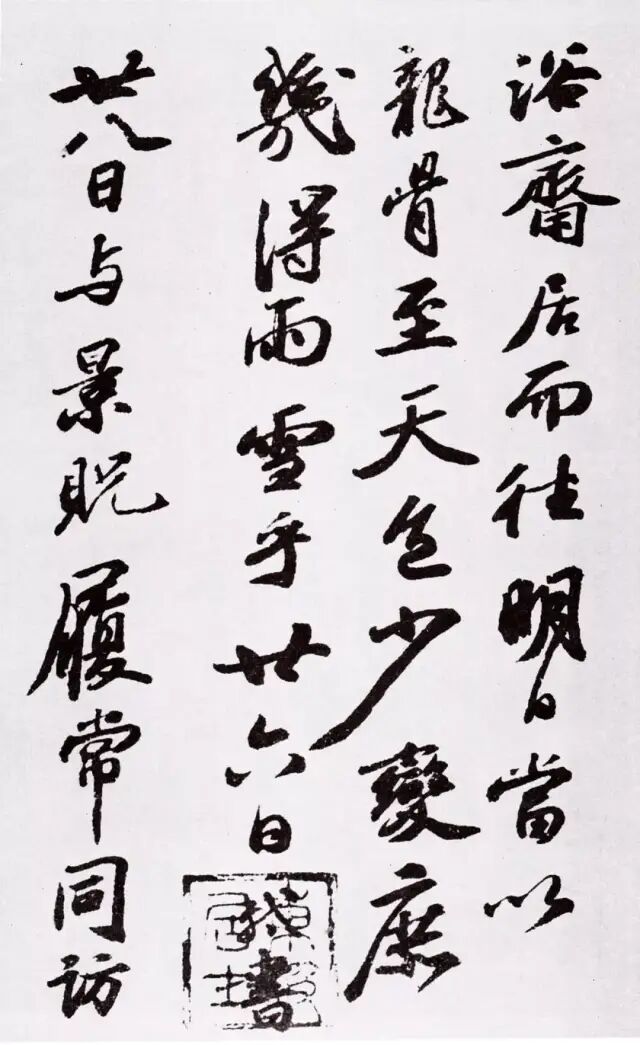 浴齋居而往明日當以
龍骨至天色少變庶
幾得雨雪乎廿六日
書
廿八日与景貺履常同訪